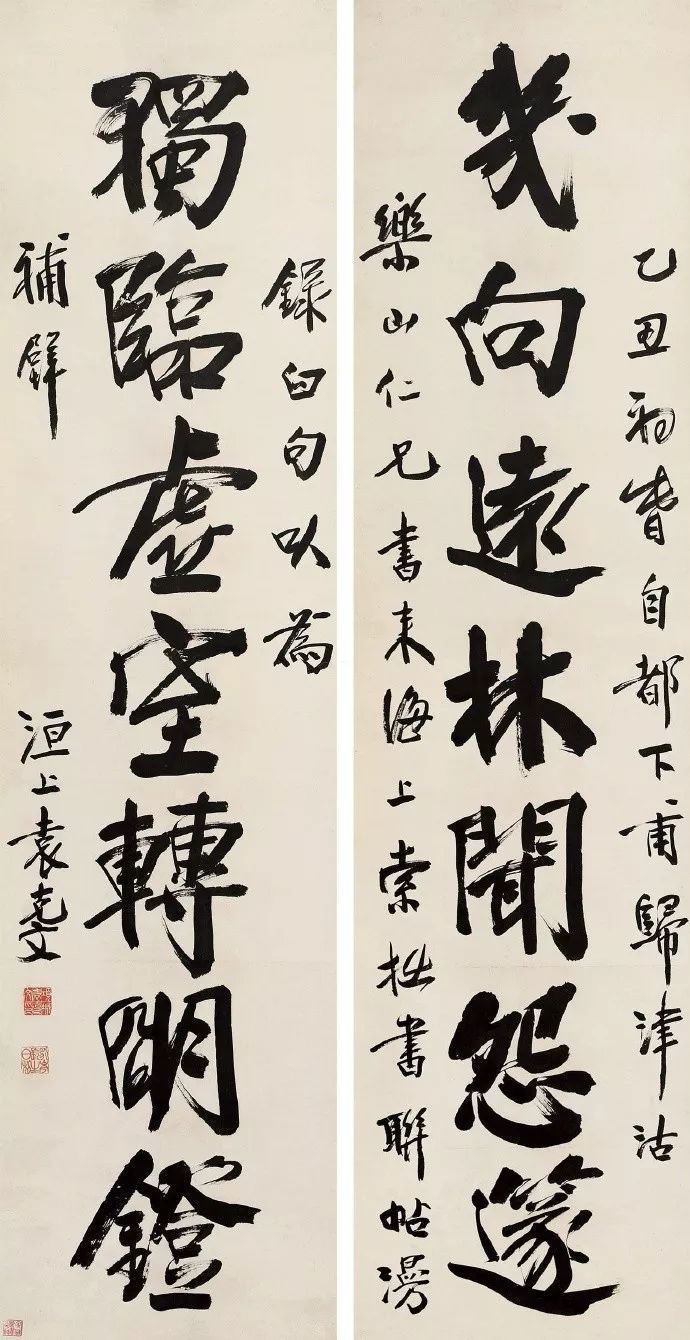 乙丑初旾自都下甫歸津沽
幾向遠林聞怨篴
樂山仁兄書來海上索拙書聯帖漫
録臼句㕥為
獨臨虛室轉朙鐙
補壁
洹上袁克文